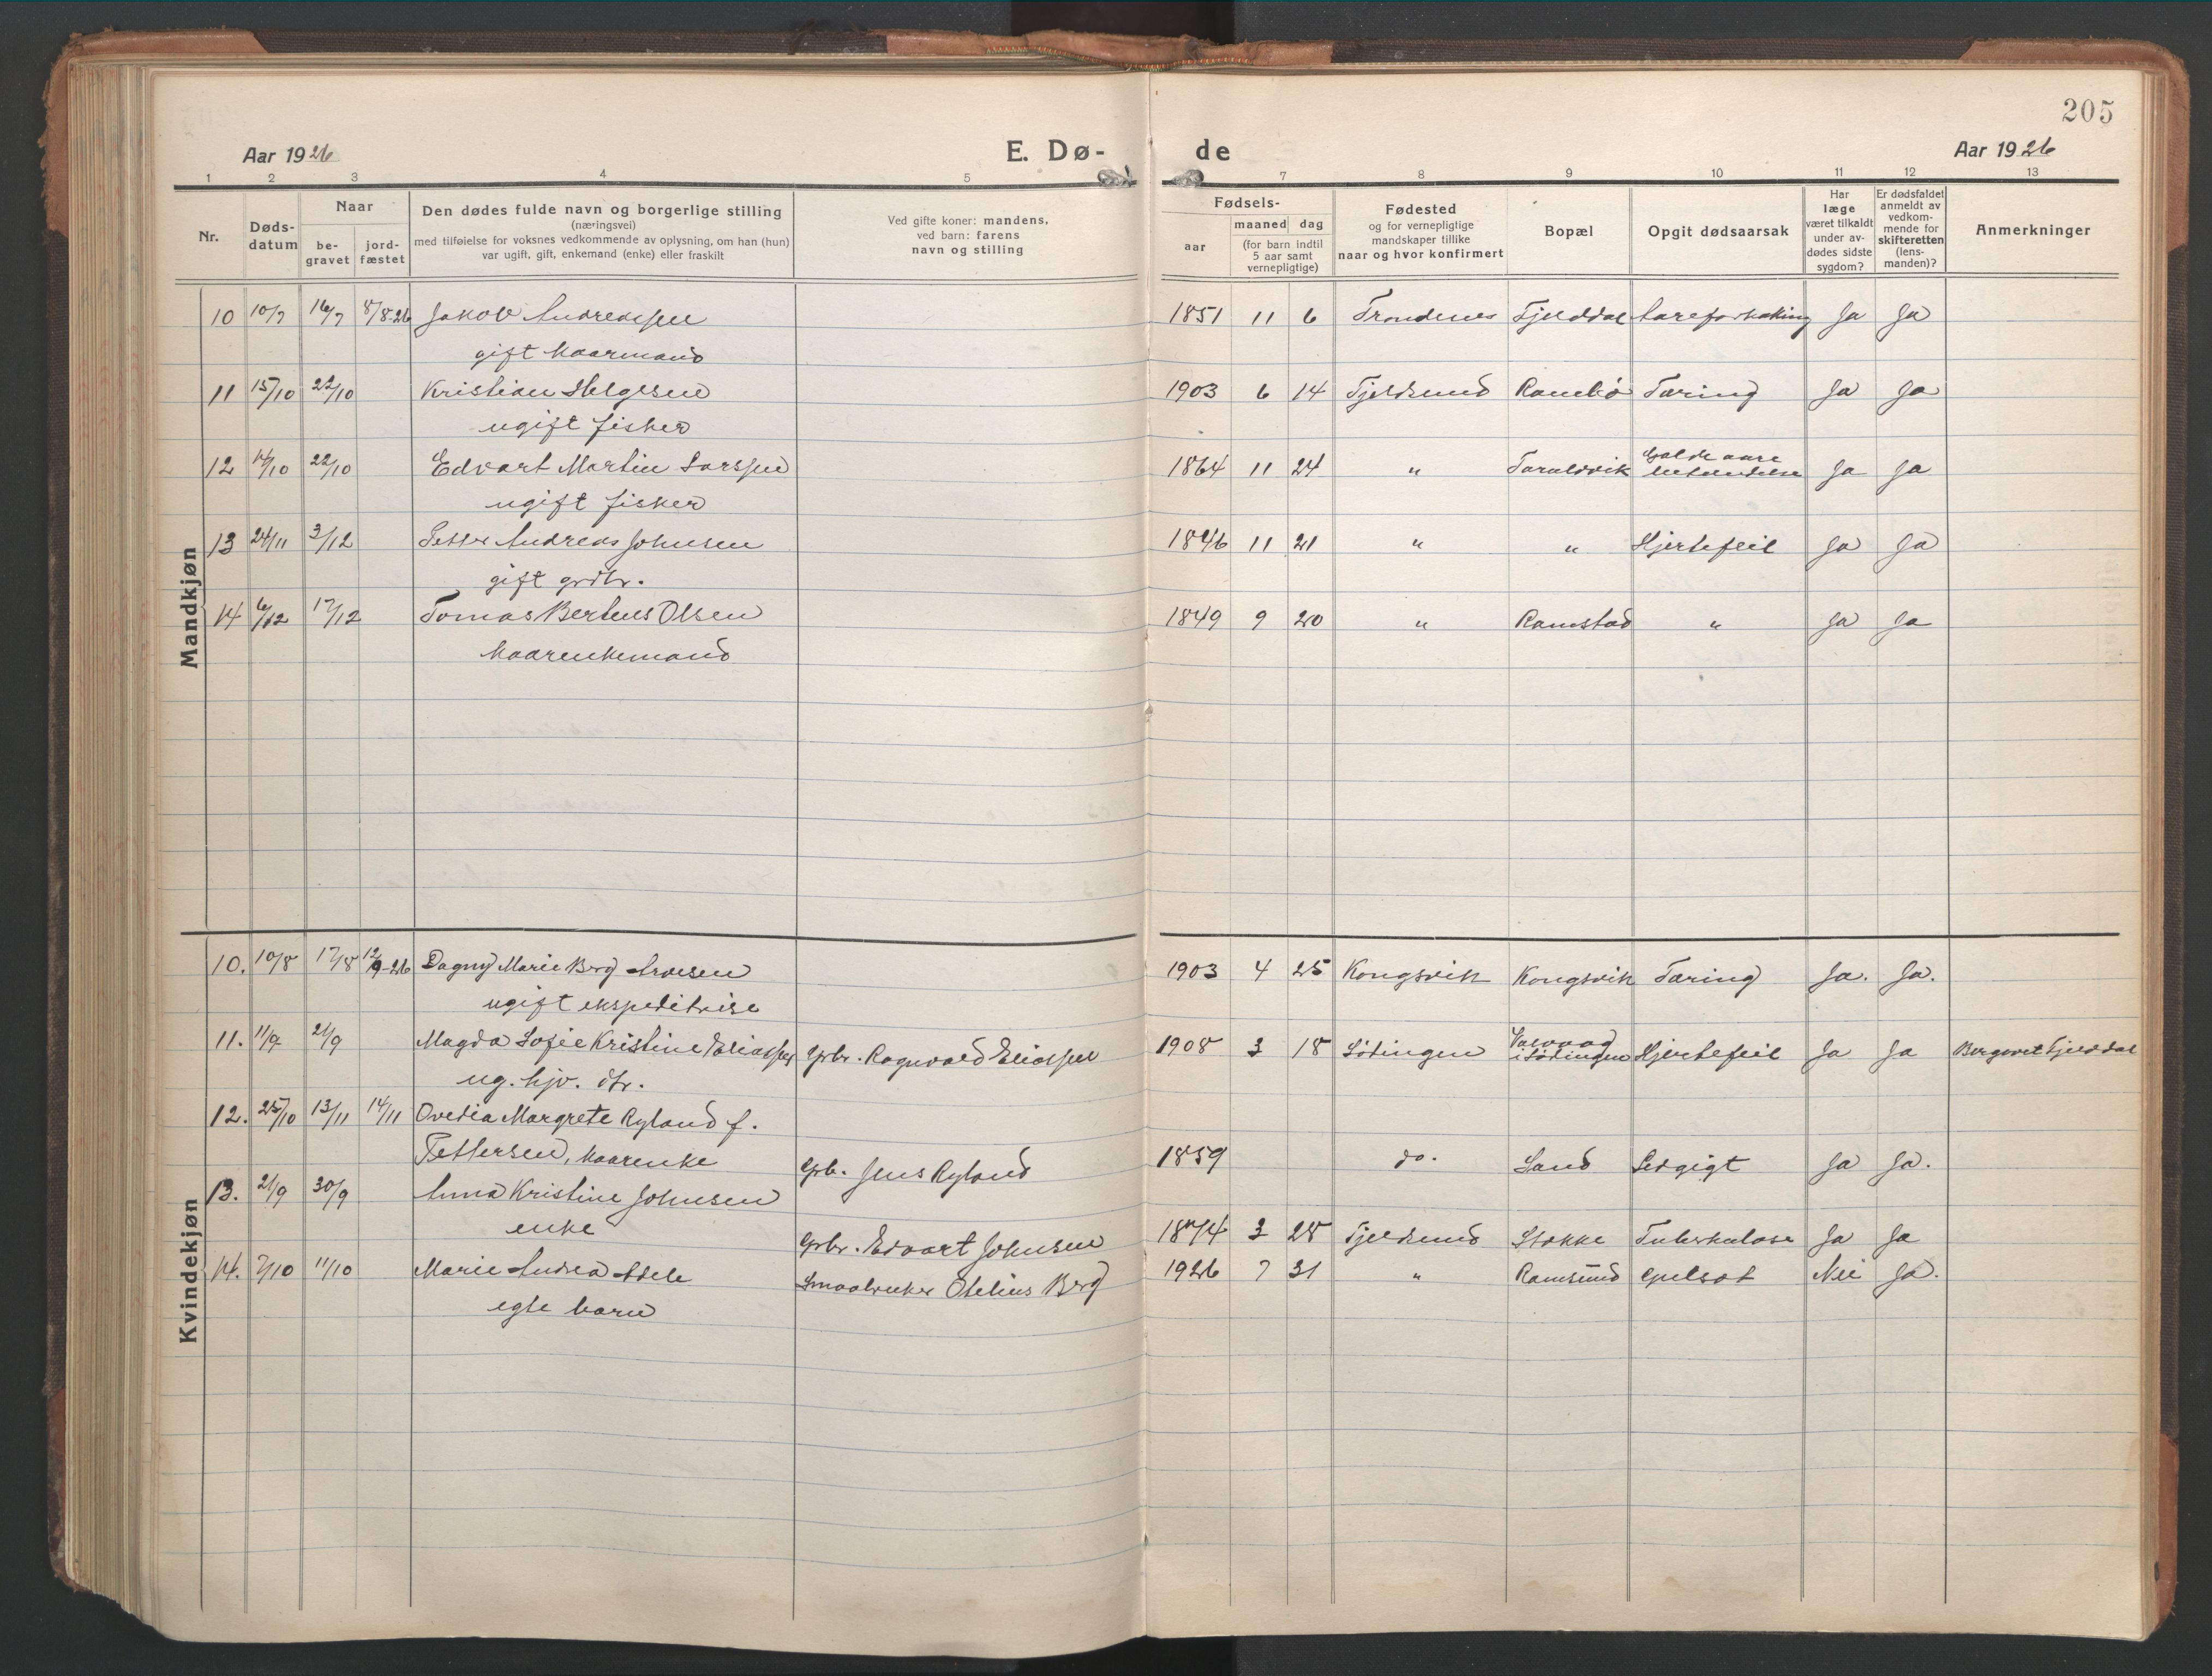 205
Aar 1926 E. Dø- de Aar 1926
1 2 3 4 5 7 8 9 10 11 12 13
Nr.
Døds-
datum
Naar
be-
gravet
jord-
fæstet
Den dødes fulde navn og borgerlige stilling
(næringsvei)
med tilføielse for voksnes vedkommende av oplysning, om han (hun)
var ugift, gift, enkemand (enke) eller fraskilt
Ved gifte koner: mandens,
ved barn: farens
navn og stilling
Fødsels-
aar
maaned dag
(for barn indtil
5 aar samt
vernepligtige)
Fødested
og for vernepligtige
mandskaper tillike
naar og hvor konfirmert
Bopæl
Opgit dødsaarsak
Har
læge
været tilkaldt
under av-
dødes sidste
sygdom?
Er dødsfaldet
anmeldt av
vedkom-
mende for
skifteretten
(lens-
manden)?
Anmerkninger
Mandkjøn
10 10/7 16/7 8/8-26 Jakob Andreassen 1851 11 6 Trondenes Fjelddal Aareforkalking Ja Ja
gift kaarmand
11 15/10 22/10 Kristian Helgesen 1903 6 14 Tjeldsund Rambø Tæring Ja Ja
ugift fisker
12 14/10 22/10 Edvart Martin Larssen 1864 11 24 " Taraldvik Galdeaare
betændelse Ja Ja
ugift fisker
13 24/11 3/12 Petter Andreas Johnsen 1846 11 21 " " Hjertefeil Ja Ja
gift grdbr.
14 6/12 17/12 Tomas Bertheus Olsen 1849 9 20 " Ramstad " Ja Ja
kaarenkemand
Kvindekjøn
10. 10/8 17/8 12/9-26 Dagny Marie Berg Arvesen 1903 4 25 Kongsvik Kongsvik Tæring Ja. Ja.
ugift ekspeditrise
11. 11/9 21/9 Magda Sofie Kristine Eliassen Grbr. Ragnvald Eliassen 1908 3 18 Lødingen
i Lødingen Hjertefeil Ja Ja Begravet Fjelddal
ug. hjv. dtr.
12. 25/10 13/11 14/11 Ovedia Margrete Ryland f.
Pettersen, kaarenke Grb. Jens Ryland 1859 do. Sand Ledgigt Ja Ja.
13. 21/9 30/9 Anna Kristine Johnsen
enke Grbr. Edvart Johnsen 1874 3 28 Tjeldsund Stokke Tuberkulose Ja Ja
14. 7/10 11/10 Marie Andrea Adele Smaabruker Otelius Berg 1926 7 31 " Ramsund Gulsot Nei Ja.
egte barn